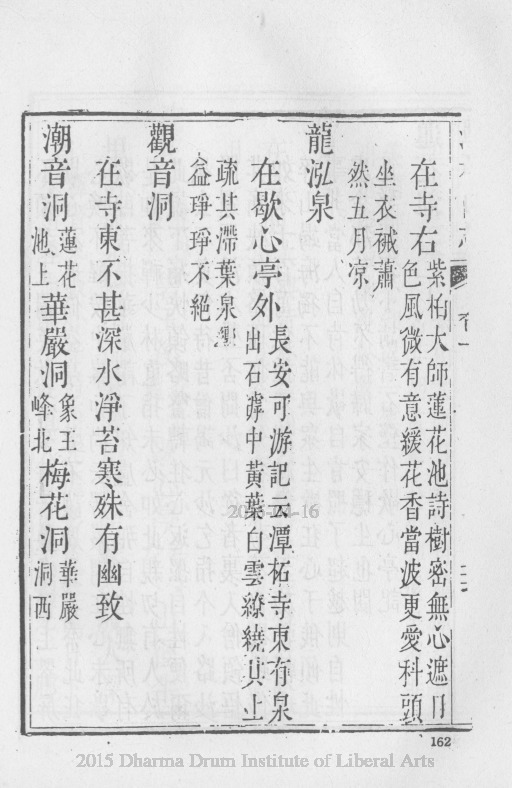 在寺右紫柏大師蓮花池詩樹密無心遮日
色風微有意緩花香當波更愛科頭
坐衣裓蕭
然五月凉
龍泓泉
在歇心亭外長安可游記潭柘寺東有泉
出石罅中黃葉白雲繚繞其上
疏其滯葉泉響
益琤琤不絕
觀音洞
在寺東不甚深水淨苔寒殊有幽致
潮音洞蓮花池上華嚴洞象王峰北梅花洞華嚴洞西
2016-11-16
162
2015 Dharma Drum Institute of Liberal Arts